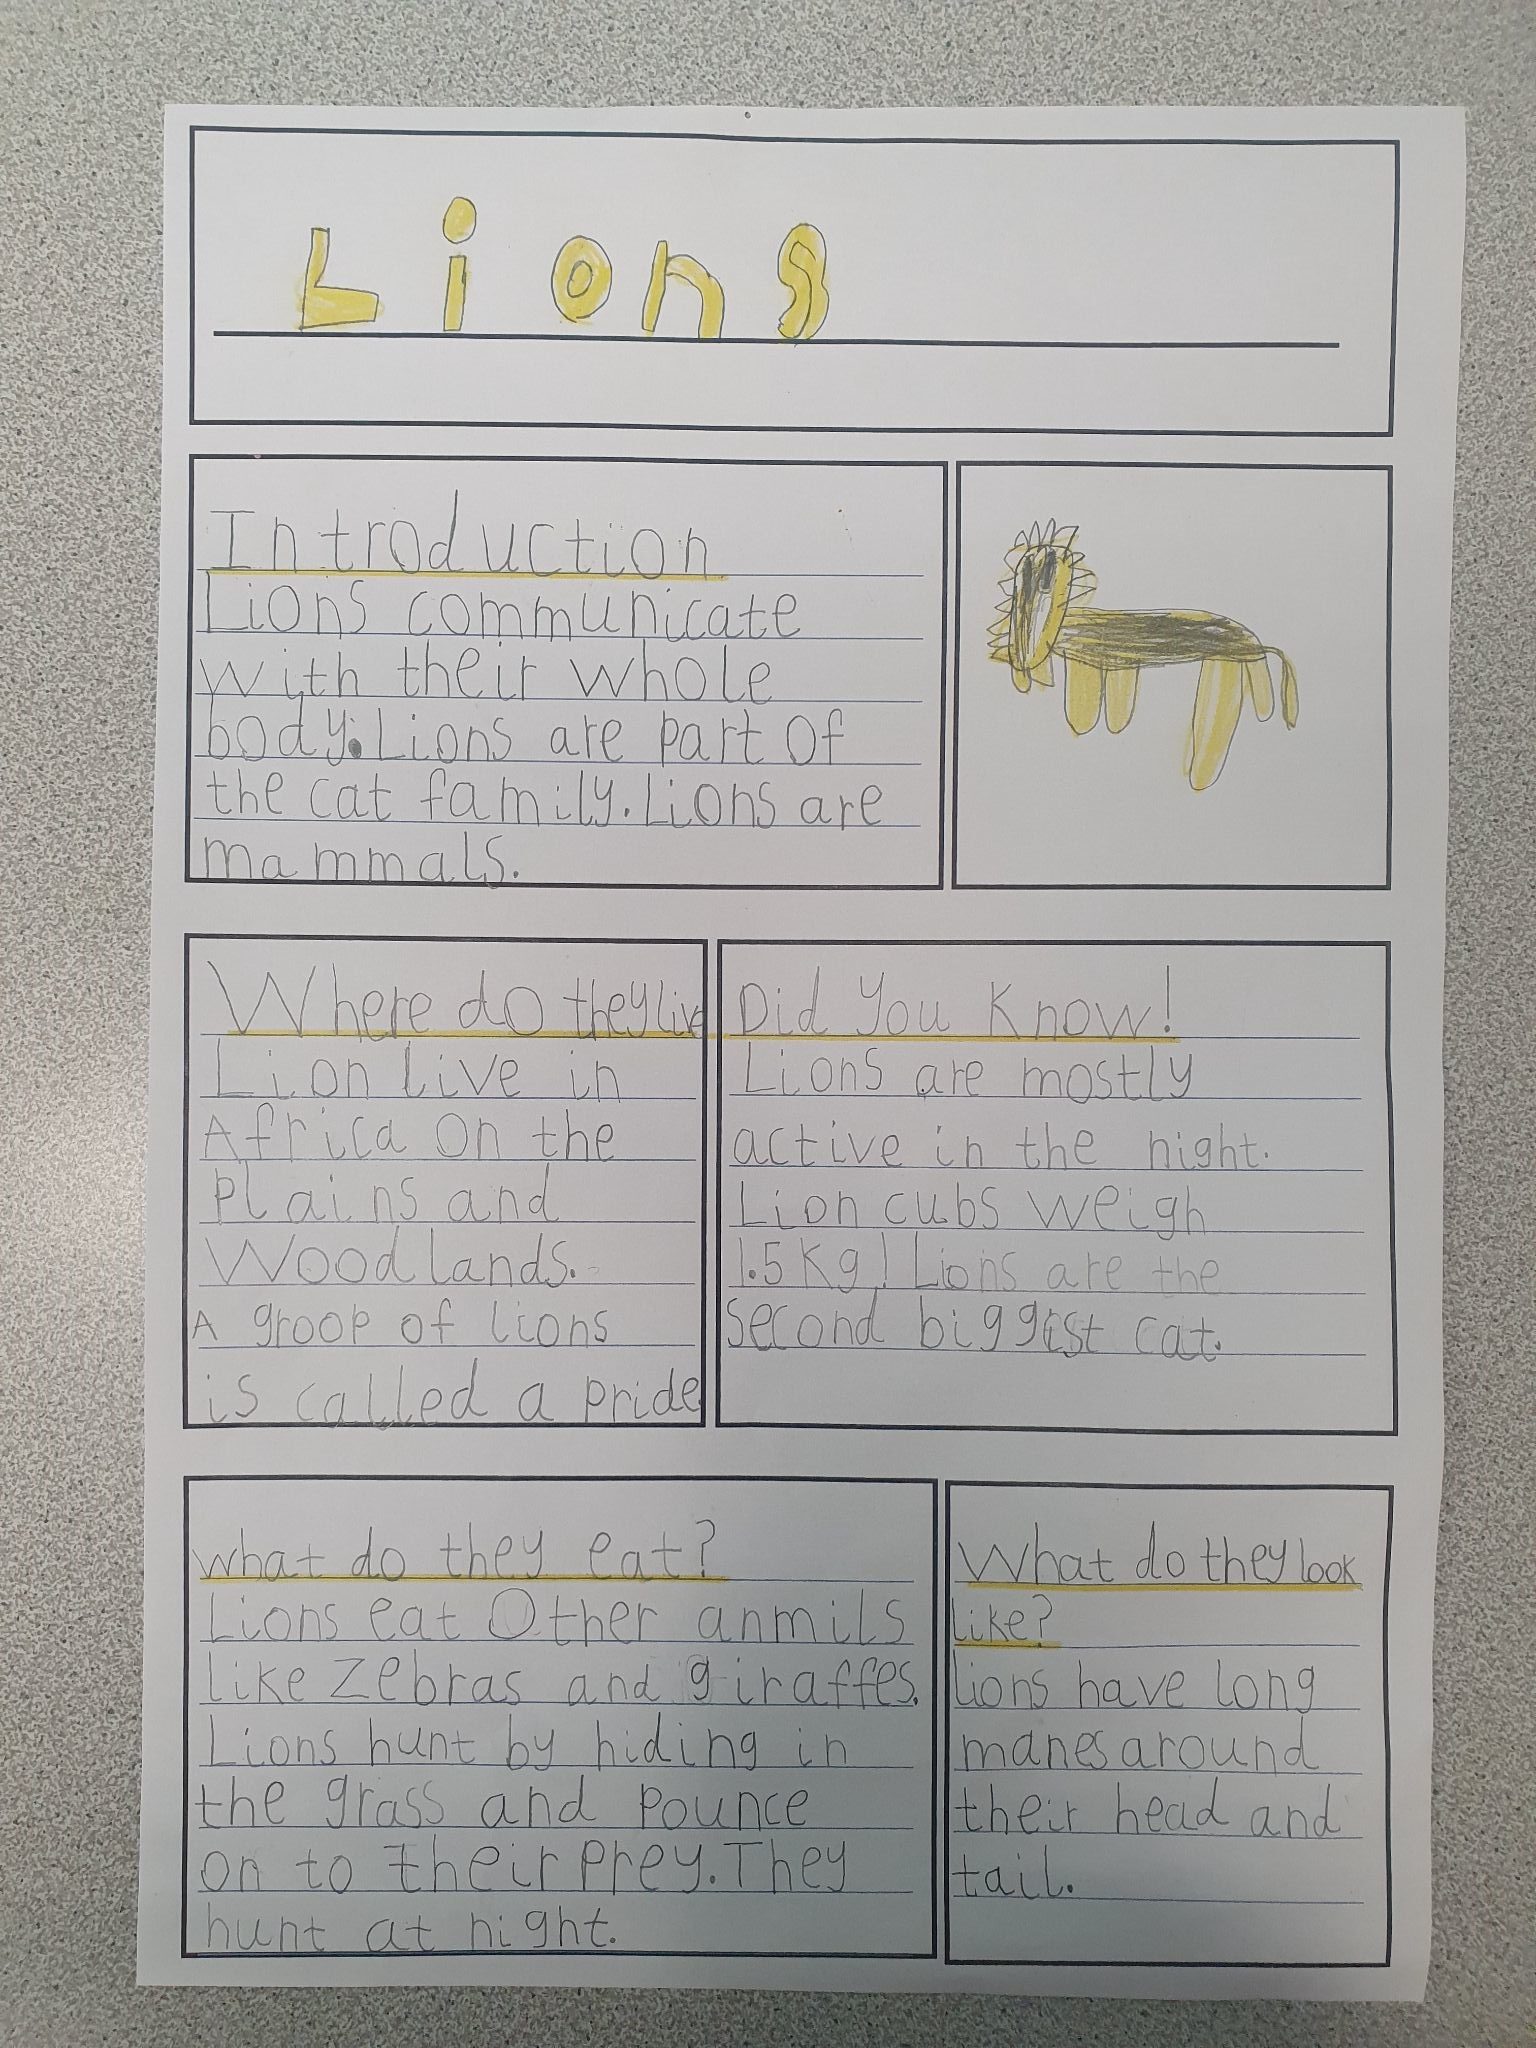 Lions
Introduction
Lions communicate
with their whole
body. Lions are part of
the cat family. Lions are
mammals.
Where do they live
Lion live in
Africa on the
Plains and
Woodlands.
A groop of lions
is called a pride
Did you know!
Lions are mostly
active in the night.
Lion cubs weigh
1.5 Kg! Lions are the
second biggest cat.
what do they eat?
Lions eat Other anmils
like zebras and giraffes.
Lions hunt by hiding in
the grass and pounce
on to their prey. They
hunt at night.
What do they look
like?
lions have long
manes around
their head and
tail.